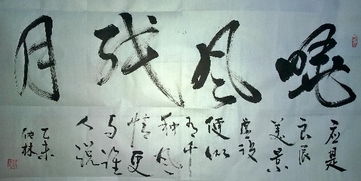 晓风残月
应是
良辰
美景
虚设
便似
有千
种风
情更
与谁
人说
乙未